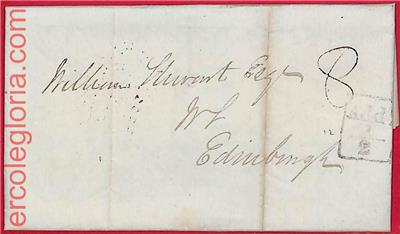 ercolegloria.com
William Stewart Esqr
8
WS
Edinburgh